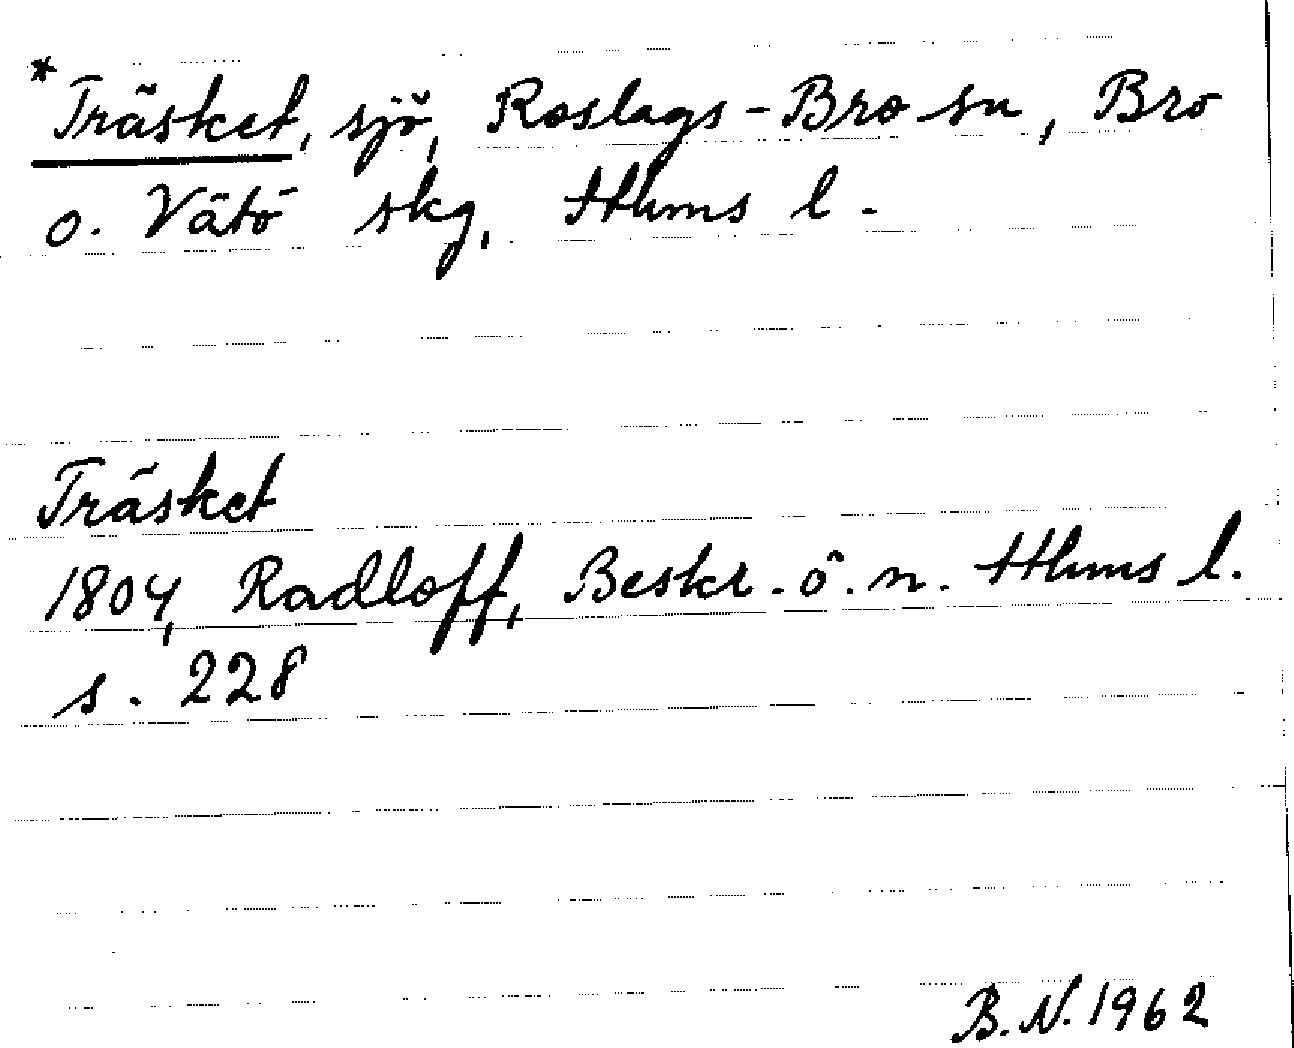 *Träsket, sjö, Roslags-Bro sn, Bro
o. Vätö skg, Sthlms l.
Träsket
1804, Radloff, Beskr. ö. n. Sthlms l.
s. 228
B.N. 1962